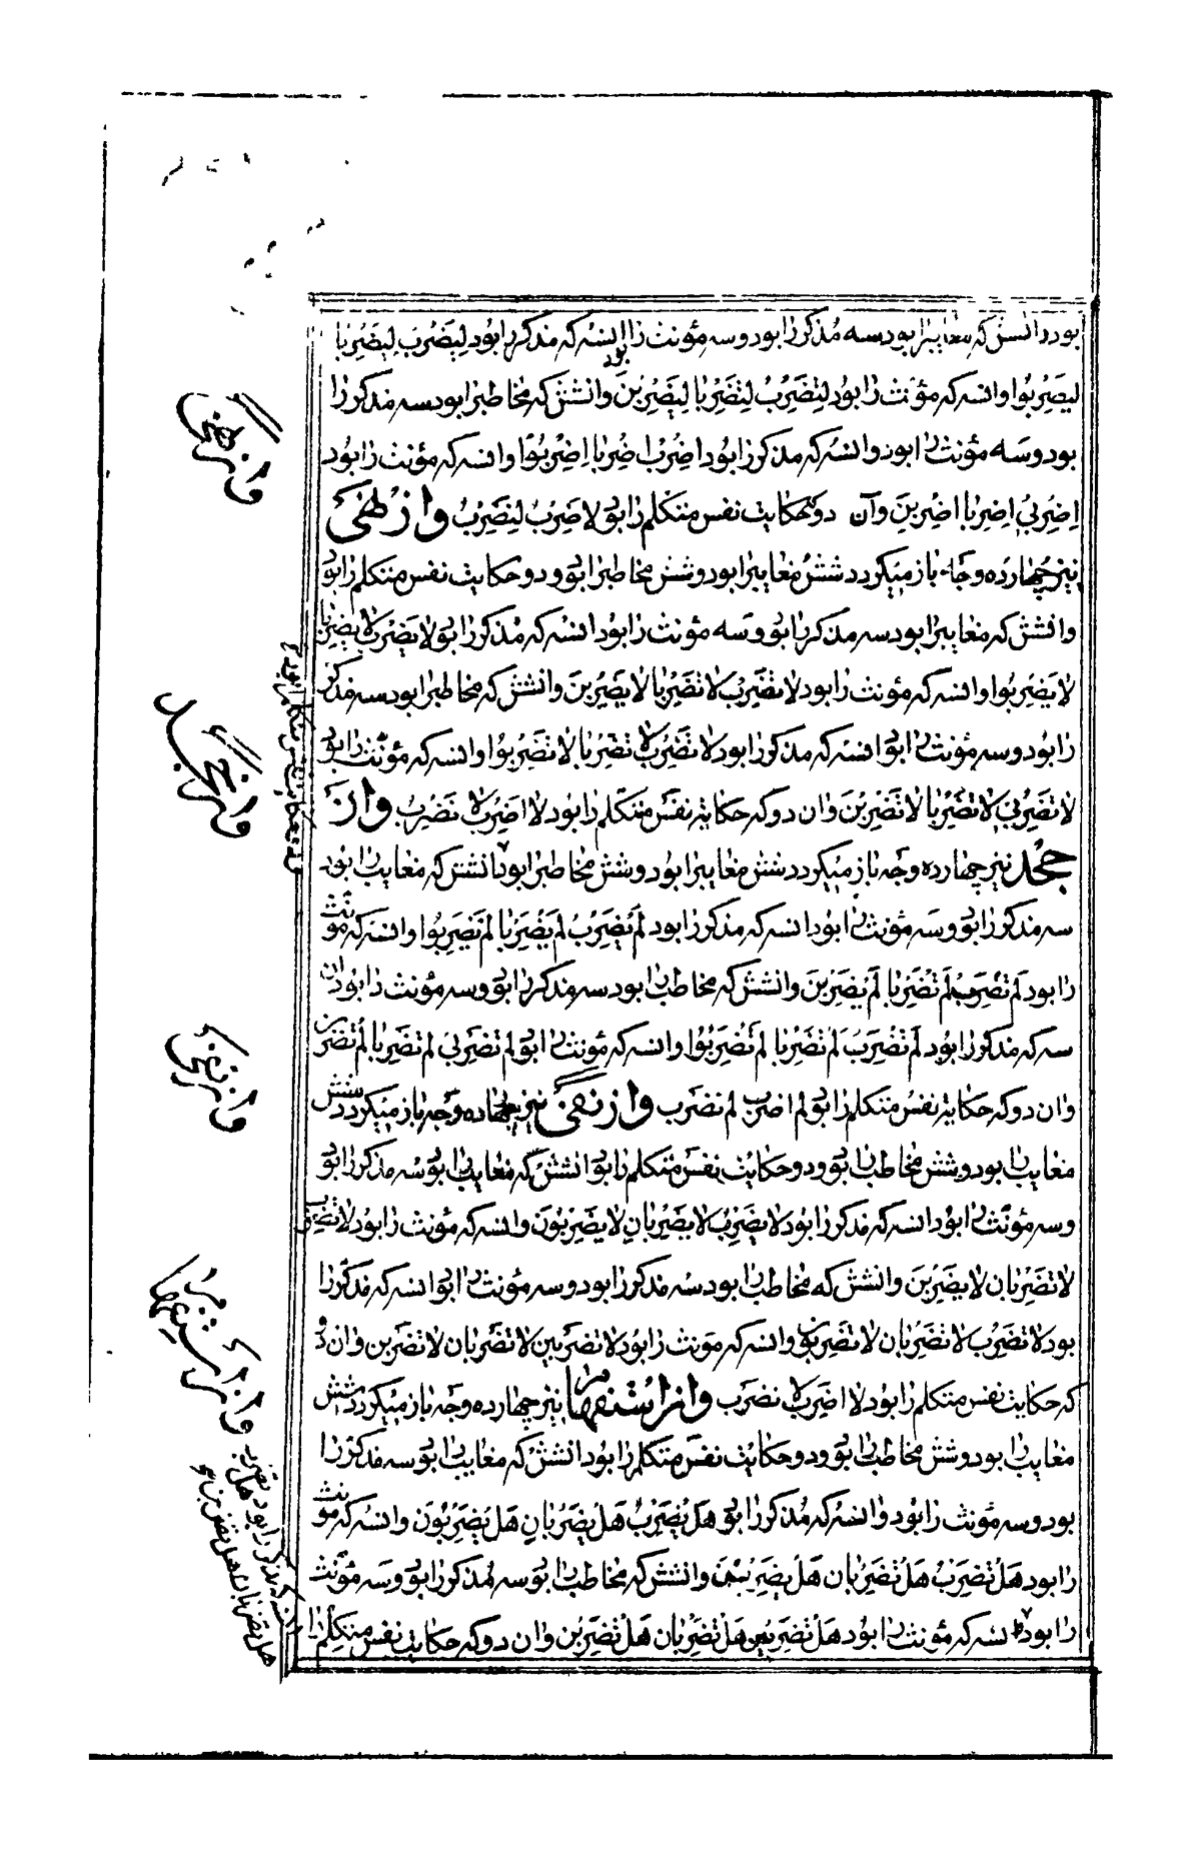 بود وانشش که مغایبرا بود سه مُذکررا بود و سه مؤنث را بود انسه که مذکررا بود لِیَضْرِبْ لِیَضْرِبا
لیضرِبُوا وانسه که مؤنث را بود لِتَضْرِبْ لِتَضْرِبا لِیَضْرِبْنَ وانشش که مخاطبرا بود سه مذکررا
بود و سه مؤنث را بود وانسه که مذکررا بود اِضْرِبْ اِضْرِبا اِضْرِبُوا وانسه که مؤنث را بود
اِضْرِبی اِضْرِبا اِضْرِبنَ وآن دو که حکایت نفس متکلم را بود لاضرِبْ لِنَضْرِبْ وَازْ نَهی
نیز چهارده وجه باز میگردد شش مغایبرا بود و شش مخاطبرا بود و دو حکایت نفس متکلم را بود
وانشش که مغایبرا بود سه مذکررا بود و سه مؤنث را بود انسه که مذکررا بود لایَضْرِبْ لایَضْرِبا
لایَضْرِبوا وانسه که مؤنث را بود لاتَضْرِبْ لاتَضْرِبا لایَضْرِبنَ وانشش که مخاطبرا بود سه مذکر
را بود و سه مؤنث را بود انسه که مذکررا بود لاتَضْرِبْ لاتَضْرِبا لاتَضْرِبُوا وانسه که مؤنث را بود
لاتَضْرِبی لاتَضْرِبا لاتَضْرِبْنَ وان دو که حکایت نفس متکلم را بود لااَضْرِبْ لانَضْرِبْ وَازْ
جَحْد نیز چهارده وجه باز میگردد شش مغایبرا بود و شش مخاطبرا بود انشش که مغایب را بود
سه مذکررا بود و سه مؤنث را بود انسه که مذکررا بود لَمْ یَضْرِبْ لَمْ یَضْرِبا لَمْ یَضْرِبُوا وانسه که مؤنث
را بود لَمْ تَضْرِبْ لَمْ تَضْرِبا لَمْ یَضْرِبْنَ وانشش که مخاطب را بود سه مذکررا بود و سه مؤنث را بود ان
سه که مذکررا بود لَمْ تَضْرِبْ لَمْ تَضْرِبا لَمْ تَضْرِبُوا وانسه که مؤنث را بود لم تَضْرِبی لم تَضْرِبا لم تَضْرِبن
وان دو که حکایت نفس متکلم را بود لم اضرب لم نضرب وَاز نَفْی نیز چهارده وجه باز میگردد شش
مغایب را بود و شش مخاطب را بود و دو حکایت نفس متکلم را بود انشش که مغایب را بود سه مذکررا بود
و سه مؤنث را بود انسه که مذکررا بود لایَضْرِبُ لایَضْرِبانِ لایَضْرِبُونَ وانسه که مؤنث را بود لاتضرب
لاتَضْرِبان لایَضْرِبنَ وانشش که مخاطب را بود سه مذکررا بود و سه مؤنث را بود انسه که مذکررا
بود لاتَضْرِبُ لاتَضْرِبان لاتَضْرِبون وانسه که مؤنث را بود لاتضربین لاتضربان لاتضربن وان دو
که حکایت نفس متکلم را بود لااضرب لانضرب وَاز اسْتفهام نیز چهارده وجه باز میگردد شش
مغایب را بود و شش مخاطب را بود و دو حکایت نفس متکلم را بود انشش که مغایب را بود سه مذکررا
بود و سه مؤنث را بود وانسه که مُذکررا بود هَلْ یَضْرِبُ هَلْ یَضْرِبانِ هَلْ یَضْرِبُونَ وانسه که مؤنث
را بود هَلْ تَضْرِبُ هَلْ تَضْرِبان هَلْ یَضْرِبْنَ وانشش که مخاطب را بود سه مُذکررا بود و سه مؤنث
را بود انسه که مؤنث را بود هَلْ تَضْرِبین هَلْ تَضْرِبان هَلْ تَضْرِبن وان دو که حکایت نفس متکلم را
واز نهی
واز جحد
واز نفی
واز استفهام